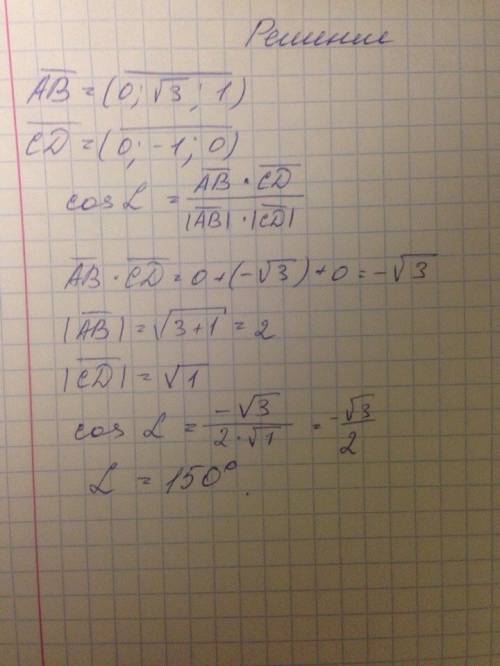 Решение
AB̅ = (0; √3; 1)
CD̅ = (0; -1; 0)
cos L = AB̅ · CD̅ / |AB̅| · |CD̅|
AB̅ · CD̅ = 0 + (-√3) + 0 = -√3
|AB̅| = √3+1 = 2
|CD̅| = √1
cos L = -√3 / 2·√1 = -√3 / 2
L = 150°.